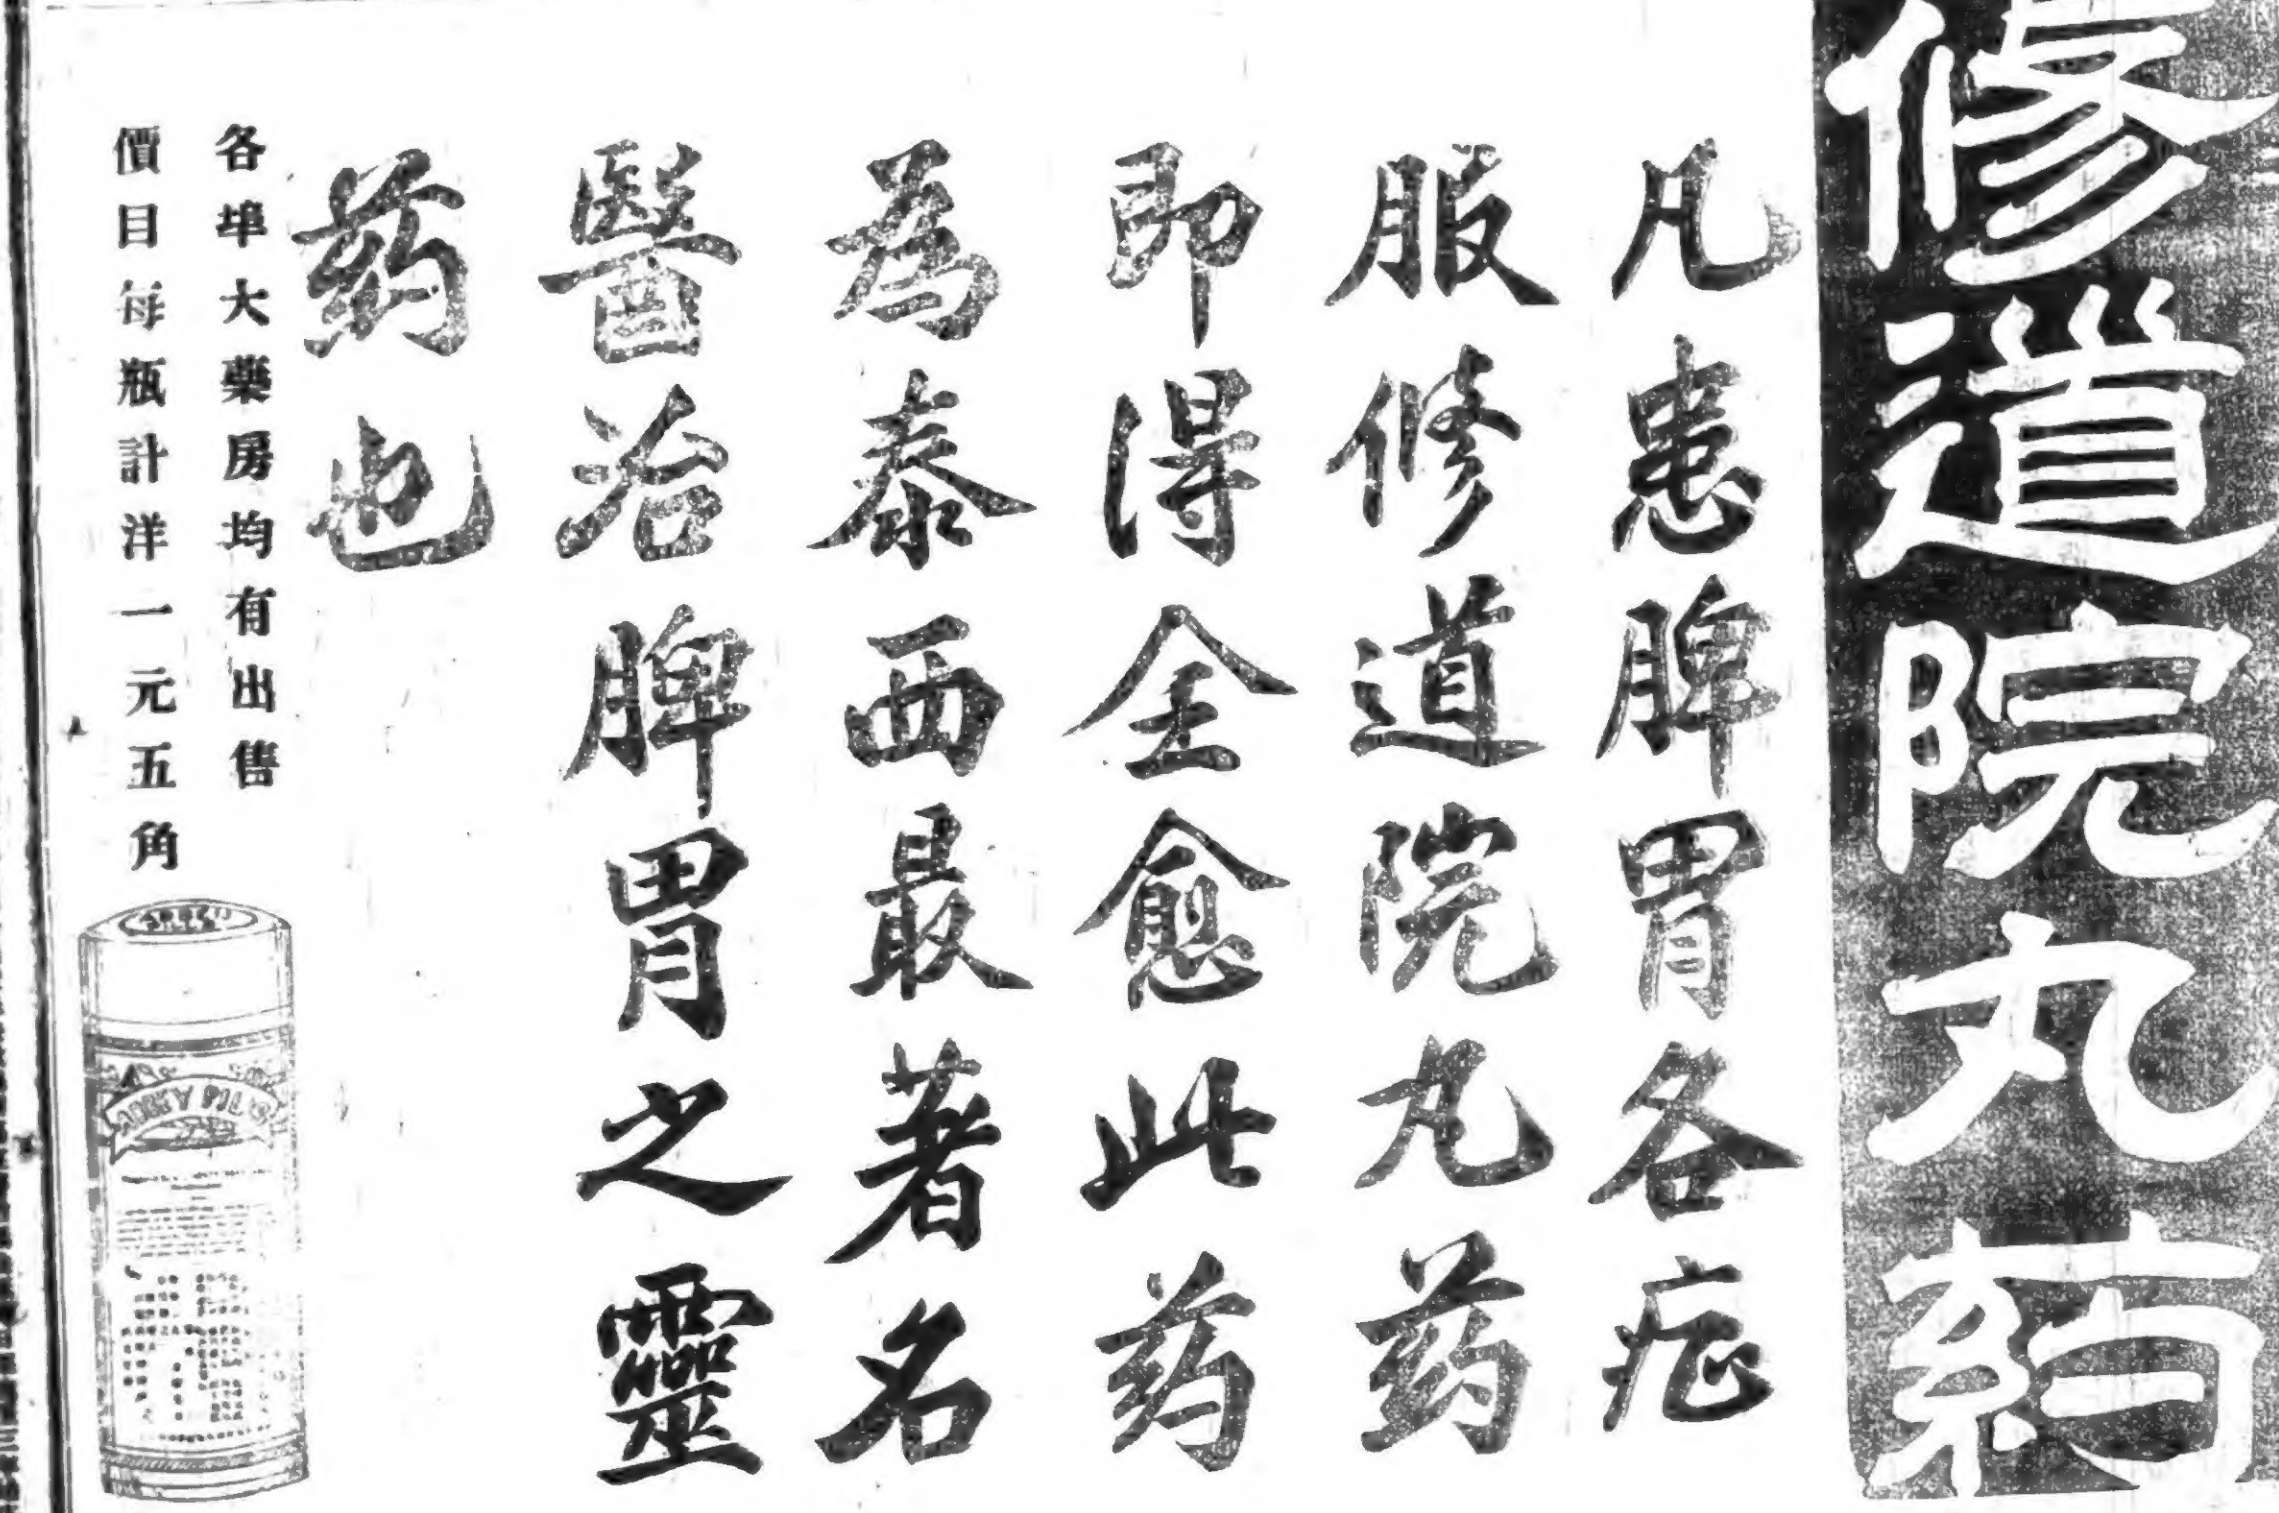 修道院丸药
凡患脾胃各症
服修道院丸药
即得全愈此药
為泰西最著名
醫治脾胃之靈
药也
各埠大藥房均有出售
價目每瓶計洋一元五角
ABBEY PILLS